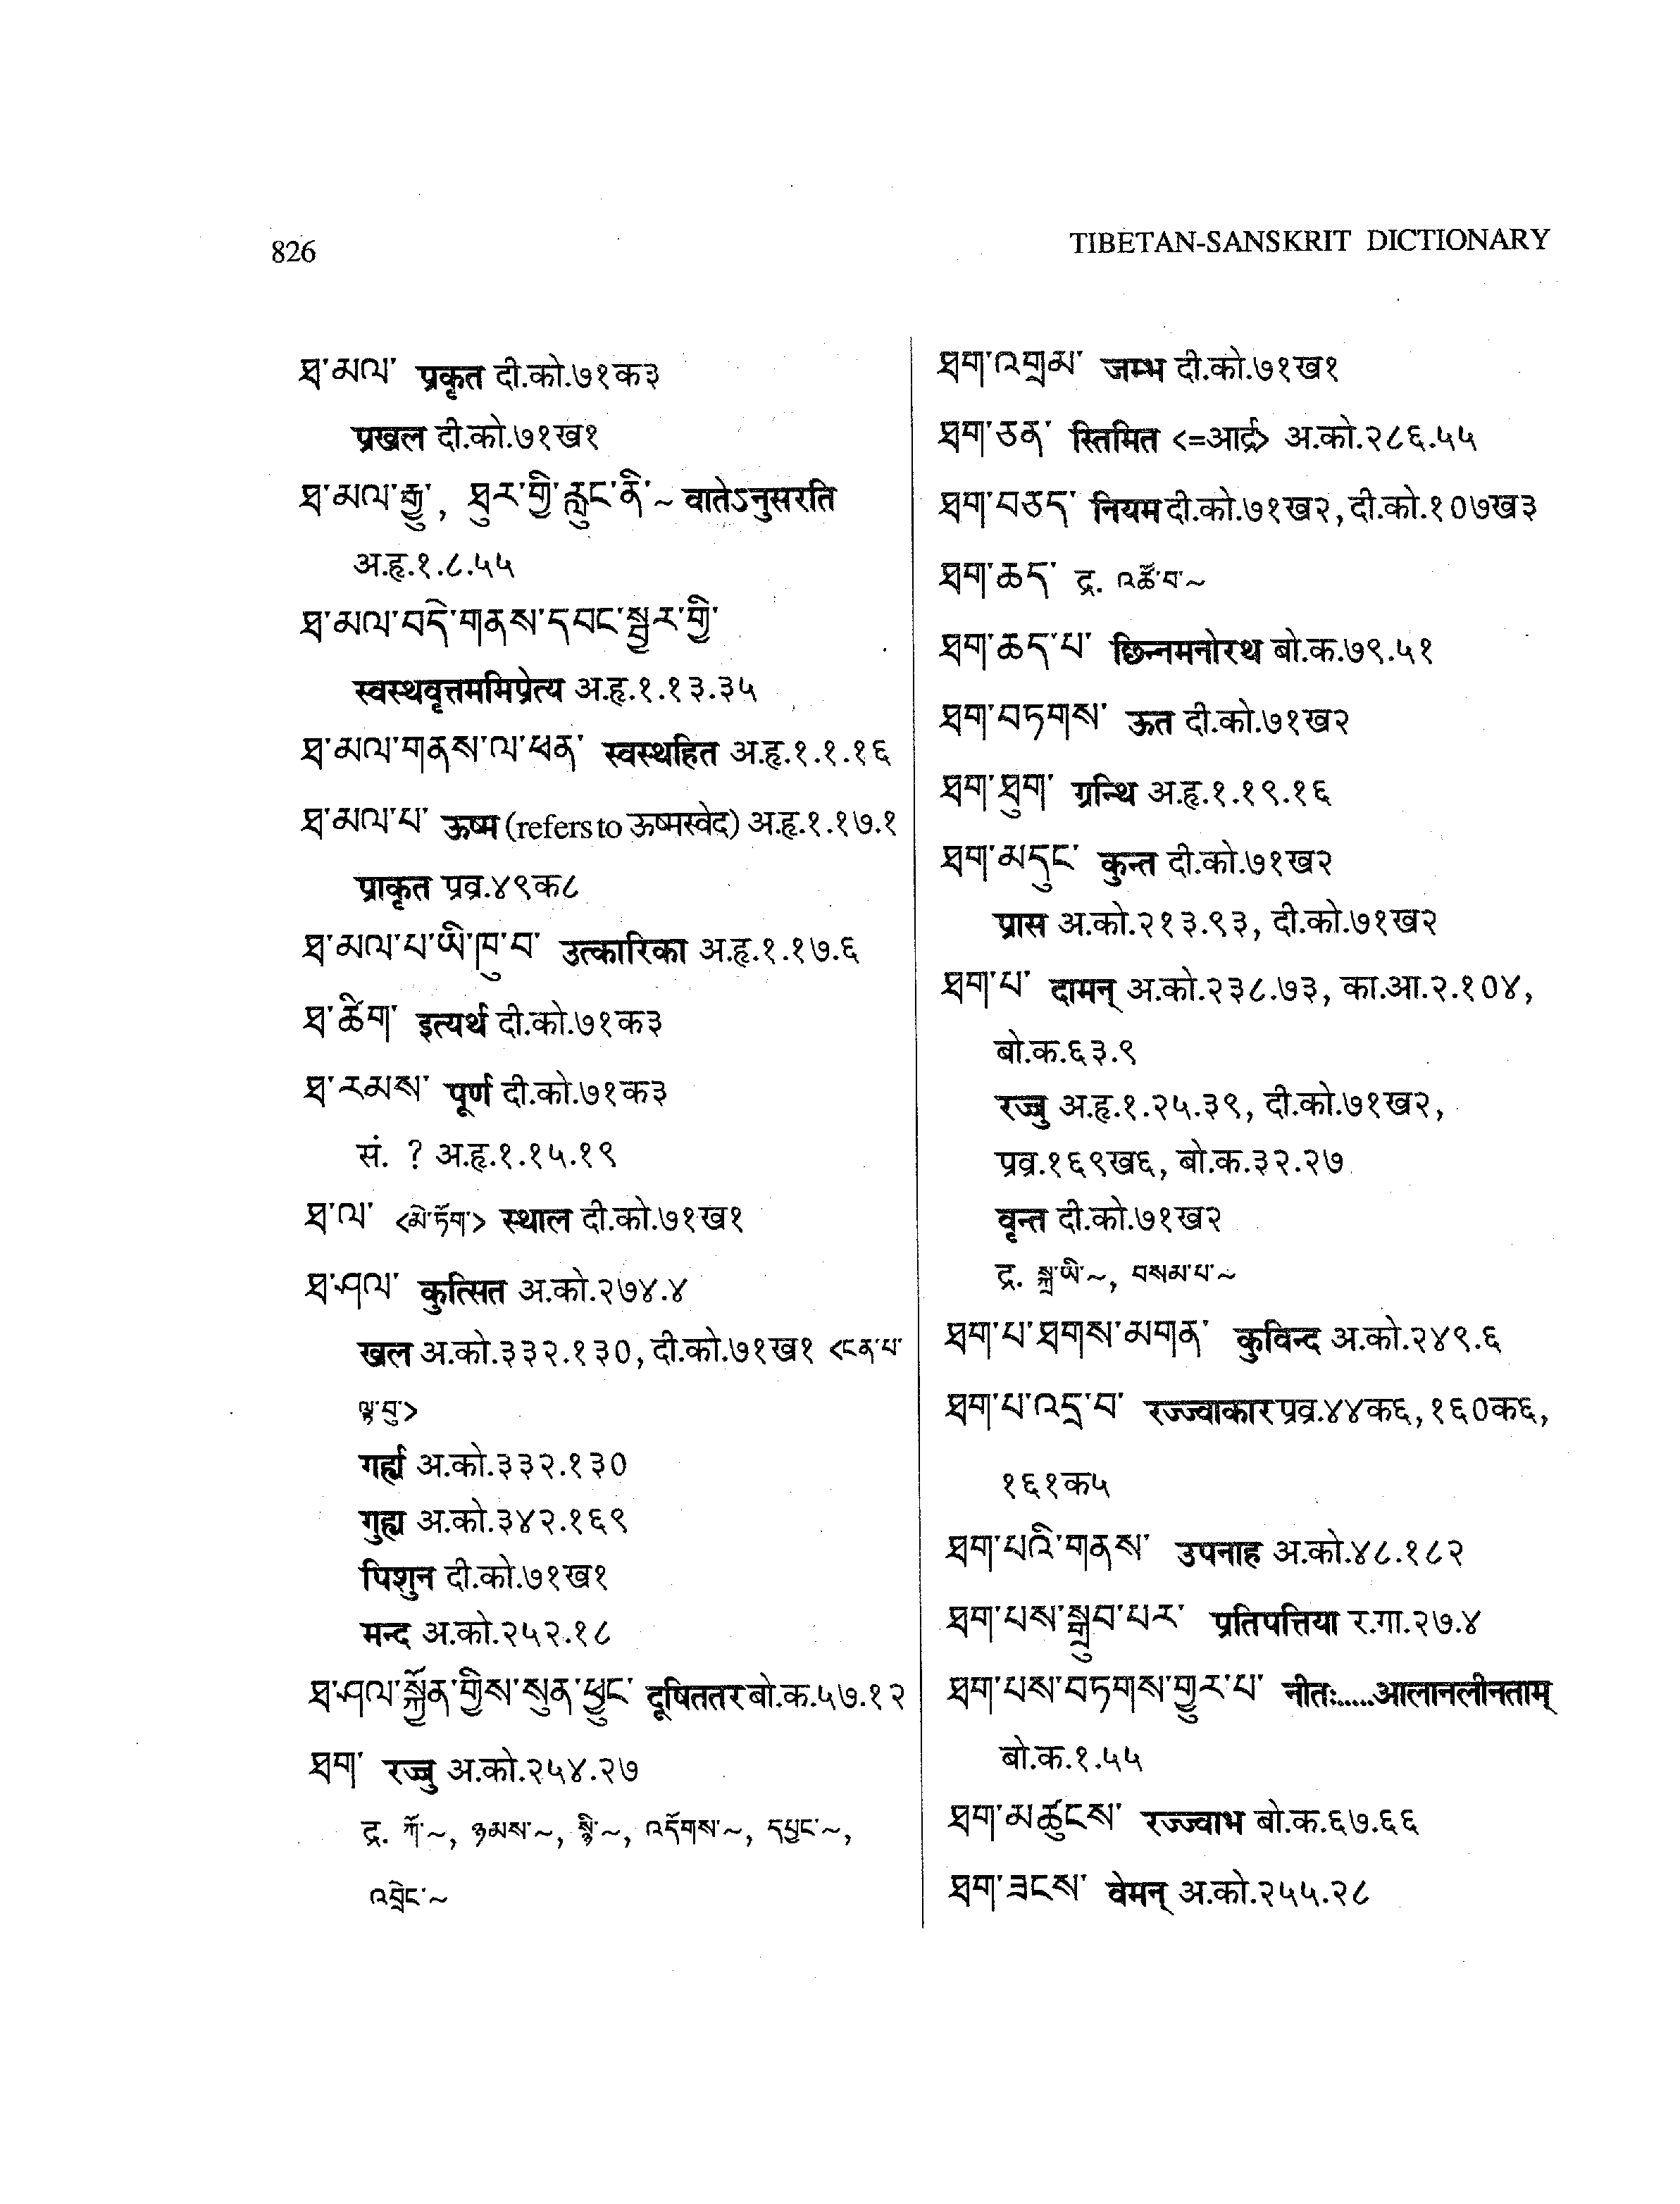 826
TIBETAN-SANSKRIT DICTIONARY
ཐ་མལ་ प्रकृत दी.को.७१क३
प्रखल दी.को.७१ख१
ཐ་མལ་རྒྱུ་, ཐུར་གྱི་རླུང་ནི་~ वातेऽनुसरति
अ.हृ.१.८.५५
ཐ་མལ་བདེ་གནས་དབང་སྦྱར་གྱི་
स्वस्थवृत्तममिप्रेत्य अ.हृ.१.१३.३५
ཐ་མལ་གནས་ལ་ཕན་ स्वस्थहित अ.हृ.१.१.१६
ཐ་མལ་པ་ ऊष्म (refers to ऊष्मस्वेद) अ.हृ.१.१७.१
प्राकृत प्रव्र.४९क८
ཐ་མལ་པ་ཡི་ཁུ་བ་ उत्कारिका अ.हृ.१.१७.६
ཐ་ཚིག་ इत्यर्थ दी.को.७१क३
ཐ་རམས་ पूर्ण दी.को.७१क३
सं. ? अ.हृ.१.१५.१९
ཐ་ལ་ <མེ་ཏོག་> स्थाल दी.को.७१ख१
ཐ་ཤལ་ कुत्सित अ.को.२७४.४
खल अ.को.३३२.१३०, दी.को.७१ख१ <ངན་པ་
ལྟ་བུ་>
गर्ह्य अ.को.३३२.१३०
गुह्य अ.को.३४२.१६९
पिशुन दी.को.७१ख१
मन्द अ.को.२५२.१८
ཐ་ཤལ་སྐྱོན་གྱིས་སུན་ཕྱུང་ दूषिततर बो.क.५७.१२
ཐག་ रज्जु अ.को.२५४.२७
द्र. ཀོ་~, ཉམས་~, སྙི་~, འདོགས་~, དཔྱང་~,
འབྲེང་~
ཐག་འགྲམ་ जम्भ दी.को.७१ख१
ཐག་ཅན་ स्तिमित <=आर्द्र> अ.को.२८६.५५
ཐག་བཅད་ नियम दी.को.७१ख२, दी.को.१०७ख३
ཐག་ཆད་ द्र. འཚོ་བ་~
ཐག་ཆད་པ་ छिन्नमनोरथ बो.क.७९.५१
ཐག་བཏགས་ ऊत दी.को.७१ख२
ཐག་ཐུག་ ग्रन्थि अ.हृ.१.१९.१६
ཐག་མདུང་ कुन्त दी.को.७१ख२
प्रास अ.को.२१३.९३, दी.को.७१ख२
ཐག་པ་ दामन् अ.को.२३८.७३, का.आ.२.१०४,
बो.क.६३.९
रज्जु अ.हृ.१.२५.३९, दी.को.७१ख२,
प्रव्र.१६९ख६, बो.क.३२.२७
वृन्त दी.को.७१ख२
द्र. སྐྲ་ཡི་~, བསམ་པ་~
ཐག་པ་ཐགས་མགན་ कुविन्द अ.को.२४९.६
ཐག་པ་འདྲ་བ་ रज्ज्वाकार प्रव्र.४४क६, १६०क६,
१६१क५
ཐག་པའི་གནས་ उपनाह अ.को.४८.१८२
ཐག་པས་སྒྲུབ་པར་ प्रतिपत्तिया र.गा.२७.४
ཐག་པས་བཏགས་གྱུར་པ་ नीतः.....आलानलीनताम्
बो.क.१.५५
ཐག་མཚུངས་ रज्ज्वाभ बो.क.६७.६६
ཐག་ཟངས་ वेमन् अ.को.२५५.२८